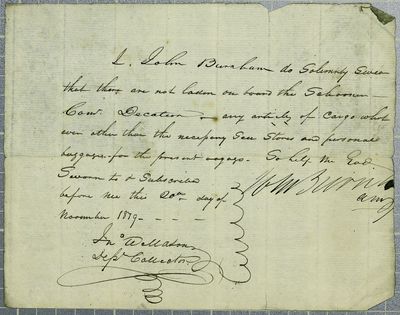 I. John Burnham do Solemnly Swear
that there are not laden on board the Schooner
Com. Decatur any article of Cargo what
ever other than the necessary Sea Stores and personal
baggage for the present voyage. So help me God
Sworn to & Subscribed
before me this 20th day of
November 1819 - - - -
John Burnh
am
Jno A Mason
Depy. Collector